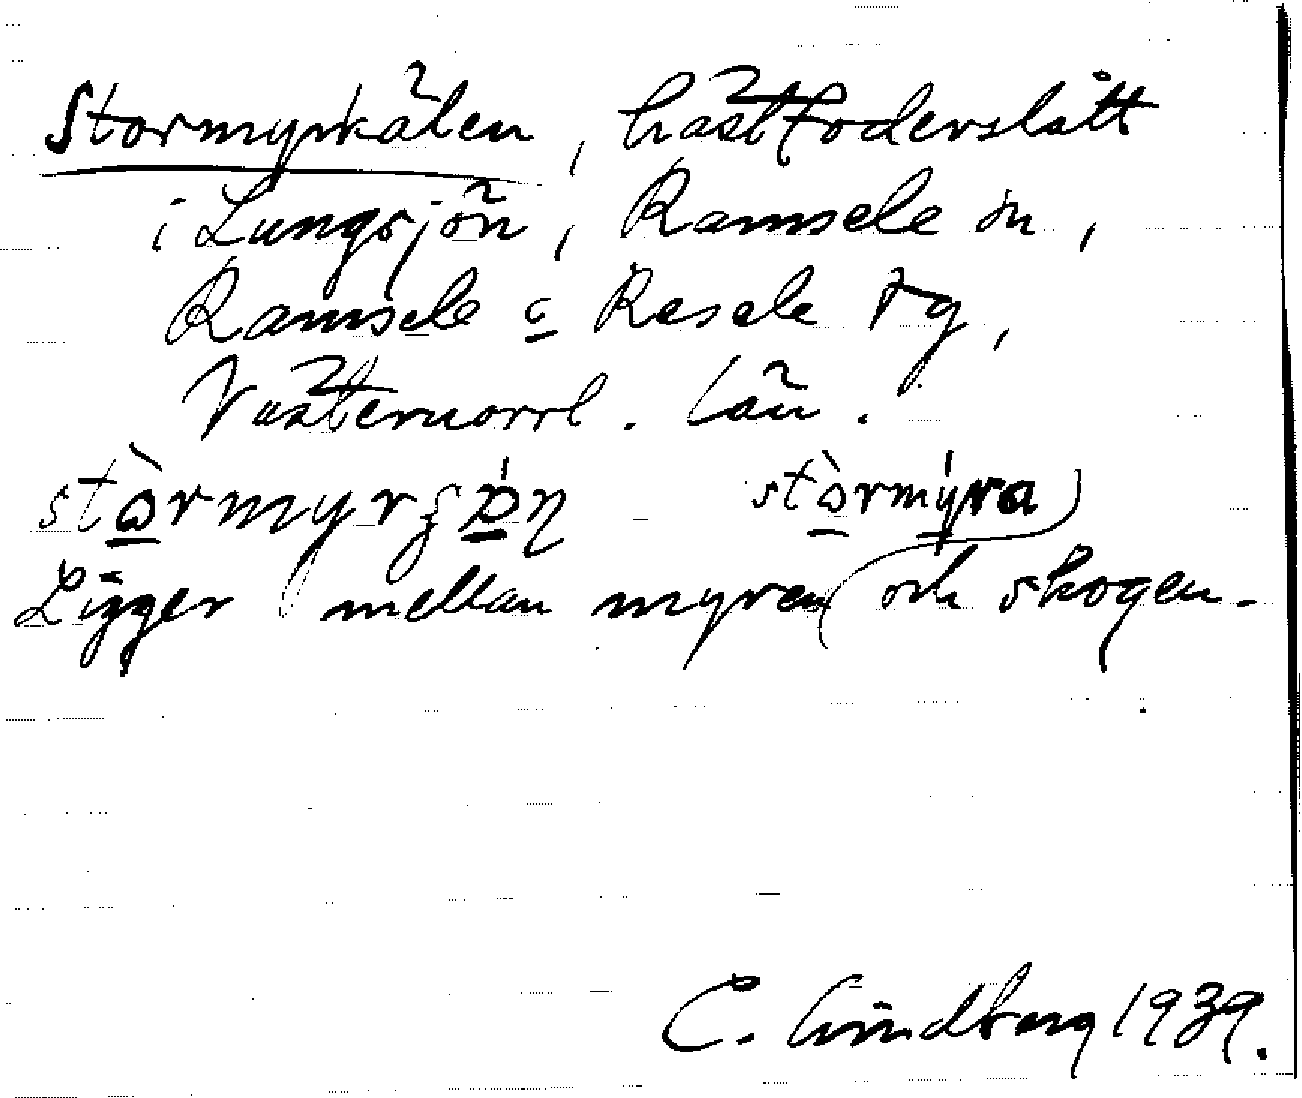 Stormyrkälen, hästfoderslått
i Lungsjön, Ramsele sn,
Ramsele o Resele tg,
Västernorrl. län.
stòrmyr stòrmyra
Ligger mellan myren och skogen.
C. Lindberg 1939.